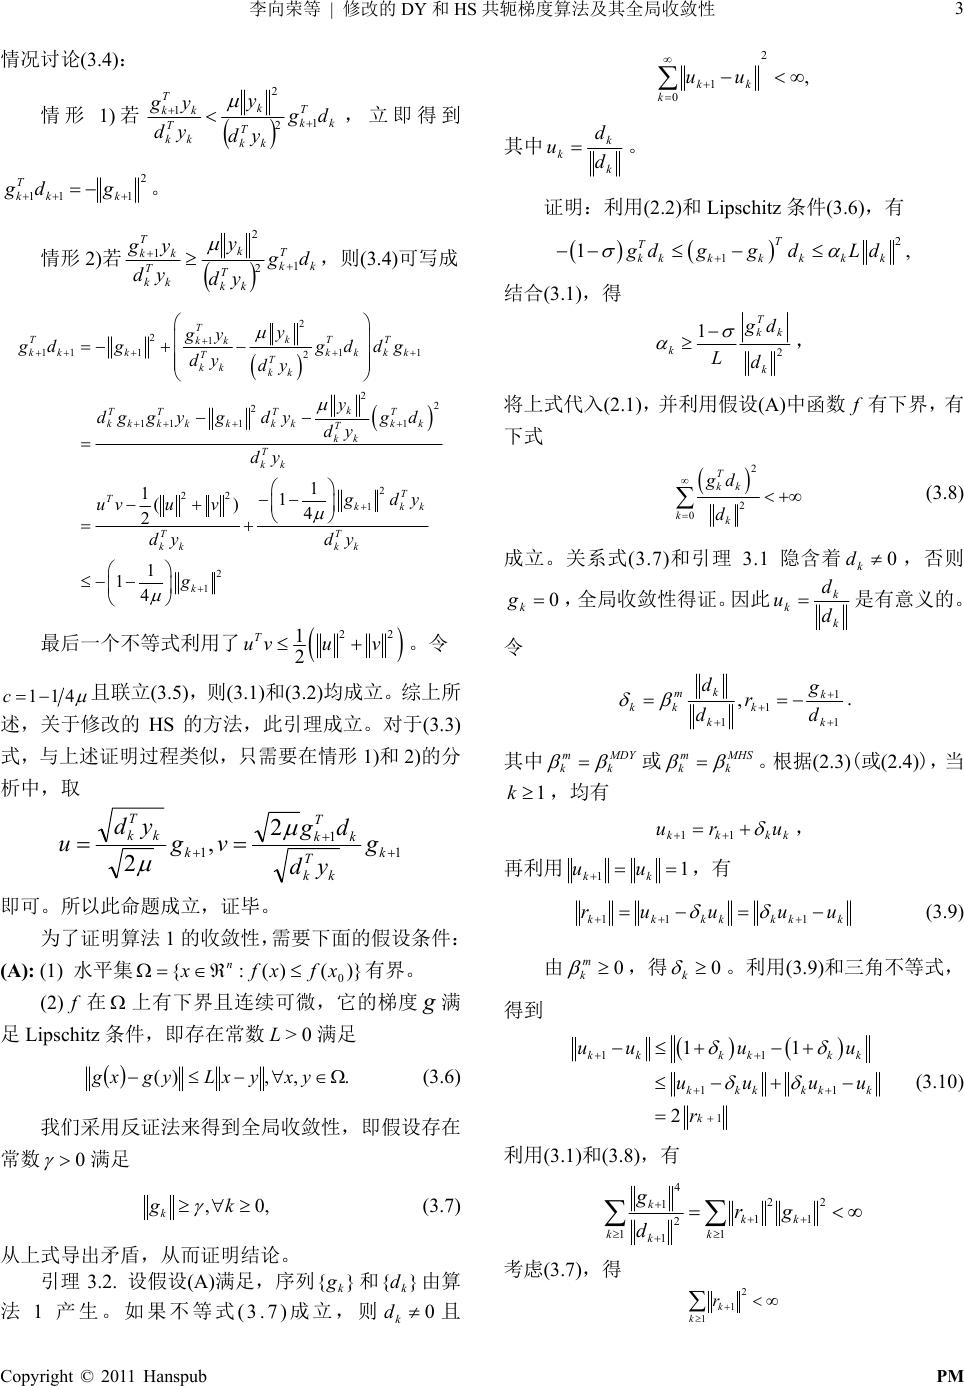 李向荣等 | 修改的 DY 和 HS 共轭梯度算法及其全局收敛性 3
情况讨论(3.4)：
情形 1)若 $\frac{g_{k+1}^T y_k}{d_k^T y_k} < \frac{\mu \|y_k\|^2}{(d_k^T y_k)^2} g_{k+1}^T d_k$ ，立即得到
$g_{k+1}^T d_{k+1} = -\|g_{k+1}\|^2$ 。
情形 2)若 $\frac{g_{k+1}^T y_k}{d_k^T y_k} \geq \frac{\mu \|y_k\|^2}{(d_k^T y_k)^2} g_{k+1}^T d_k$ ，则(3.4)可写成
$g_{k+1}^T d_{k+1} = -\|g_{k+1}\|^2 + \left( \frac{g_{k+1}^T y_k}{d_k^T y_k} - \frac{\mu \|y_k\|^2}{(d_k^T y_k)^2} g_{k+1}^T d_k \right) d_k^T g_{k+1}$
$= \frac{d_k^T g_{k+1} g_{k+1}^T y_k - \|g_{k+1}\|^2 d_k^T y_k - \mu \frac{\|y_k\|^2}{d_k^T y_k} (g_{k+1}^T d_k)^2}{d_k^T y_k}$
$= \frac{u^T v - \frac{1}{2}(\|u\|^2 + \|v\|^2)}{d_k^T y_k} + \frac{-\left(1 - \frac{1}{4\mu}\right) \|g_{k+1}\|^2 d_k^T y_k}{d_k^T y_k}$
$\leq -\left(1 - \frac{1}{4\mu}\right) \|g_{k+1}\|^2$
最后一个不等式利用了 $u^T v \leq \frac{1}{2}(\|u\|^2 + \|v\|^2)$ 。令
$c = 1 - 1/4\mu$ 且联立(3.5)，则(3.1)和(3.2)均成立。综上所
述，关于修改的 HS 的方法，此引理成立。对于(3.3)
式，与上述证明过程类似，只需要在情形 1)和 2)的分
析中，取
$u = \frac{\sqrt{d_k^T y_k}}{\sqrt{2\mu}} g_{k+1}, v = \frac{\sqrt{2\mu} g_{k+1}^T d_k}{\sqrt{d_k^T y_k}} g_{k+1}$
即可。所以此命题成立，证毕。
为了证明算法 1 的收敛性，需要下面的假设条件：
(A): (1) 水平集 $\Omega = \{x \in \Re^n : f(x) \leq f(x_0)\}$ 有界。
(2) $f$ 在 $\Omega$ 上有下界且连续可微，它的梯度 $g$ 满
足 Lipschitz 条件，即存在常数 $L > 0$ 满足
$\|g(x) - g(y)\| \leq L\|x - y\|, \forall x, y \in \Omega.$ (3.6)
我们采用反证法来得到全局收敛性，即假设存在
常数 $\gamma > 0$ 满足
$\|g_k\| \geq \gamma, \forall k \geq 0,$ (3.7)
从上式导出矛盾，从而证明结论。
引理 3.2. 设假设(A)满足，序列 $\{g_k\}$ 和 $\{d_k\}$ 由算
法 1 产生。如果不等式(3.7)成立，则 $d_k \neq 0$ 且
$\sum_{k=0}^{\infty} \|u_{k+1} - u_k\|^2 < \infty,$
其中 $u_k = \frac{d_k}{\|d_k\|}$ 。
证明：利用(2.2)和 Lipschitz 条件(3.6)，有
$-(1 - \sigma) g_k^T d_k \leq (g_{k+1} - g_k)^T d_k \leq \alpha_k L \|d_k\|^2,$
结合(3.1)，得
$\alpha_k \geq \frac{1 - \sigma}{L} \frac{|g_k^T d_k|}{\|d_k\|^2}$ ，
将上式代入(2.1)，并利用假设(A)中函数 $f$ 有下界，有
下式
$\sum_{k=0}^{\infty} \frac{(g_k^T d_k)^2}{\|d_k\|^2} < +\infty$ (3.8)
成立。关系式(3.7)和引理 3.1 隐含着 $d_k \neq 0$ ，否则
$g_k = 0$ ，全局收敛性得证。因此 $u_k = \frac{d_k}{\|d_k\|}$ 是有意义的。
令
$\delta_k = \beta_k^m \frac{\|d_k\|}{\|d_{k+1}\|}, r_{k+1} = -\frac{g_{k+1}}{\|d_{k+1}\|}.$
其中 $\beta_k^m = \beta_k^{MDY}$ 或 $\beta_k^m = \beta_k^{MHS}$ 。根据(2.3)(或(2.4))，当
$k \geq 1$ ，均有
$u_{k+1} = r_{k+1} + \delta_k u_k$ ，
再利用 $\|u_{k+1}\| = \|u_k\| = 1$ ，有
$\|r_{k+1}\| = \|u_{k+1} - \delta_k u_k\| = \|\delta_k u_{k+1} - u_k\|$ (3.9)
由 $\beta_k^m \geq 0$ ，得 $\delta_k \geq 0$ 。利用(3.9)和三角不等式，
得到
$\|u_{k+1} - u_k\| \leq \|(1 + \delta_k) u_{k+1} - (1 + \delta_k) u_k\|$
$\leq \|u_{k+1} - \delta_k u_k\| + \|\delta_k u_{k+1} - u_k\|$ (3.10)
$= 2\|r_{k+1}\|$
利用(3.1)和(3.8)，有
$\sum_{k \geq 1} \frac{\|g_{k+1}\|^4}{\|d_{k+1}\|^2} = \sum_{k \geq 1} \|r_{k+1}\|^2 \|g_{k+1}\|^2 < \infty$
考虑(3.7)，得
$\sum_{k \geq 1} \|r_{k+1}\|^2 < \infty$
Copyright © 2011 Hanspub PM